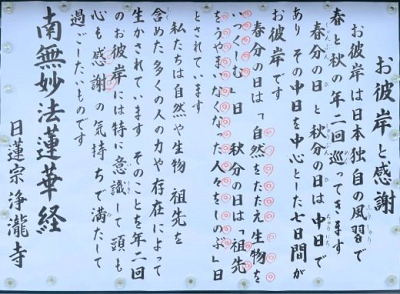 お彼岸と感謝
お彼岸は日本独自の風習で
春と秋の年二回巡ってきます
春分の日と秋分の日は中日で
あり その中日を中心とした七日間が
お彼岸です
春分の日は「自然をたたえ生物を
いつくしむ」日 秋分の日は「祖先
をうやまいなくなった人々をしのぶ」日
とされています
私たちは自然や生物 祖先を
含めた多くの人の力や存在によって
生かされています そのことを年二回
のお彼岸には特に意識して頭も
心も感謝の気持ちで満たして
過ごしたいものです
南無妙法蓮華経
日蓮宗 浄瀧寺